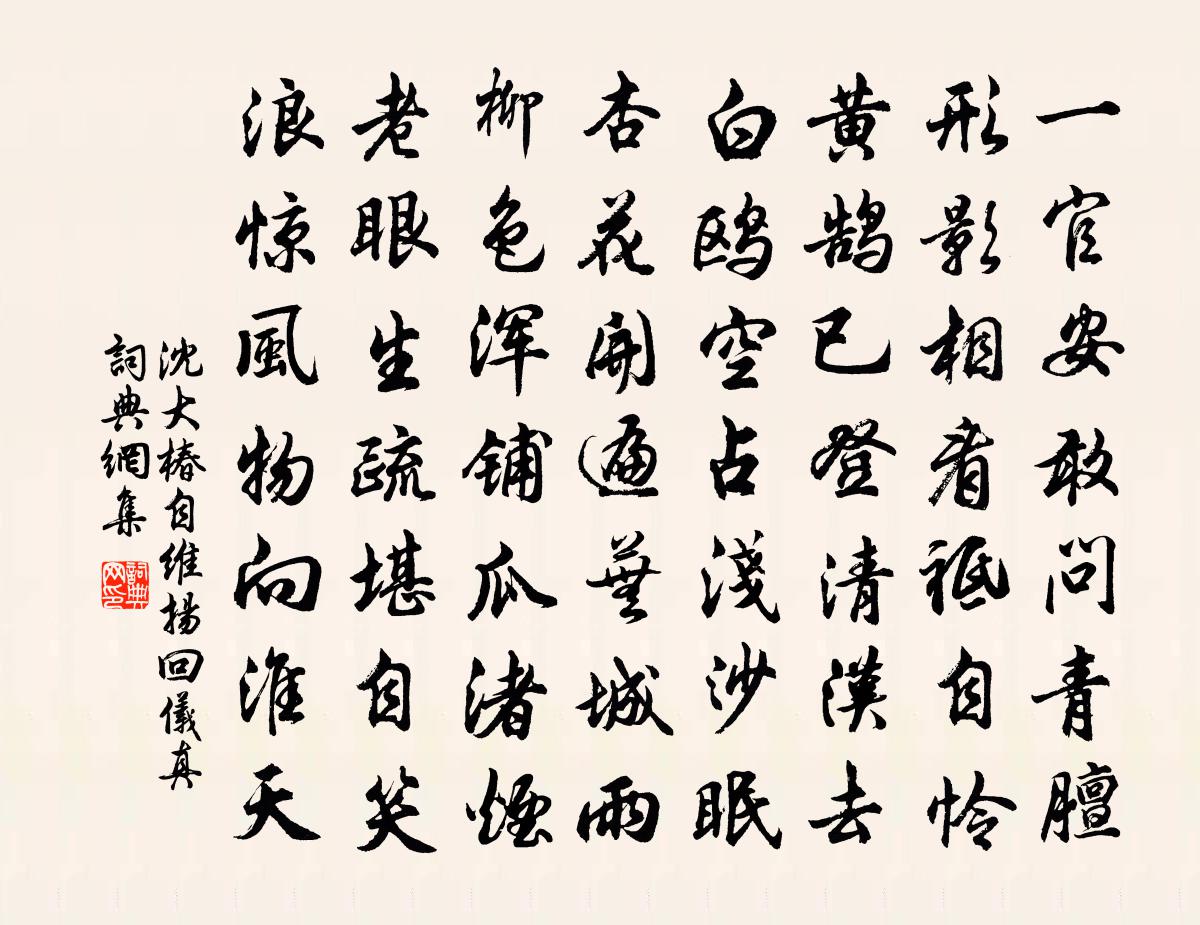 一官安敢问青膻
形影相看祗自怜
黄鹄已登清漢去
白鸥空占淺沙眠
杏花開遍蕪城雨
柳色浑铺瓜渚煙
老眼生疏堪自笑
浪惊風物向淮天
沈大椿自维揚回儀真
詞典網集
詞典网印